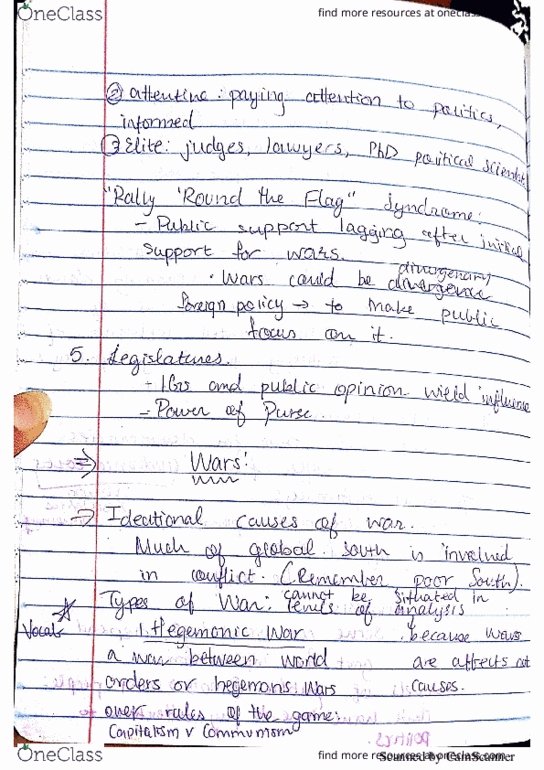 OneClass find more resources at oneclass.com
② attentive: paying attention to politics,
informed
③ Elite: judges, lawyers, PhD political scientist
"Rally 'Round the Flag" Syndrome:
- Public support lagging after initial
support for wars.
· Wars could be divergence
foreign policy → to make public
focus on it.
5. Legislatures.
- IGs and public opinion wield influence
- Power of Purse
⇒ Wars:
⇒ Ideational causes of war.
Much of global south is involved
in conflict. (Remember poor South).
Types of War: cannot be situated in
levels of analysis
Vocab 1. Hegemonic War because wars
a war between world are affects not
orders or hegemons Wars causes.
over rules of the game:
Capitalism v Communism
OneClass find more resources at oneclass.com
Scanned by CamScanner